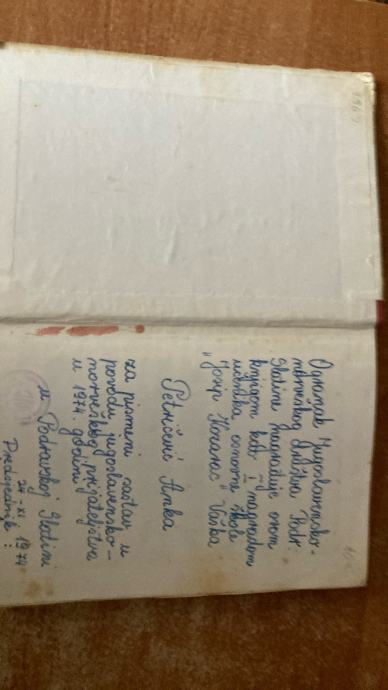 Ogranak Jugoslavensko-
norveškog društva Podr.
Slatina nagrađuje ovom
knjigom kao I nagradom
učenika osnovne škole
"Josip Kozarac -
Anka
za pismeni sastav u
povodu jugoslavensko-
norveškog prijateljstva
u 1974 godini
u Podravskoj Slatini
24-XI 1974
Predsjednik: